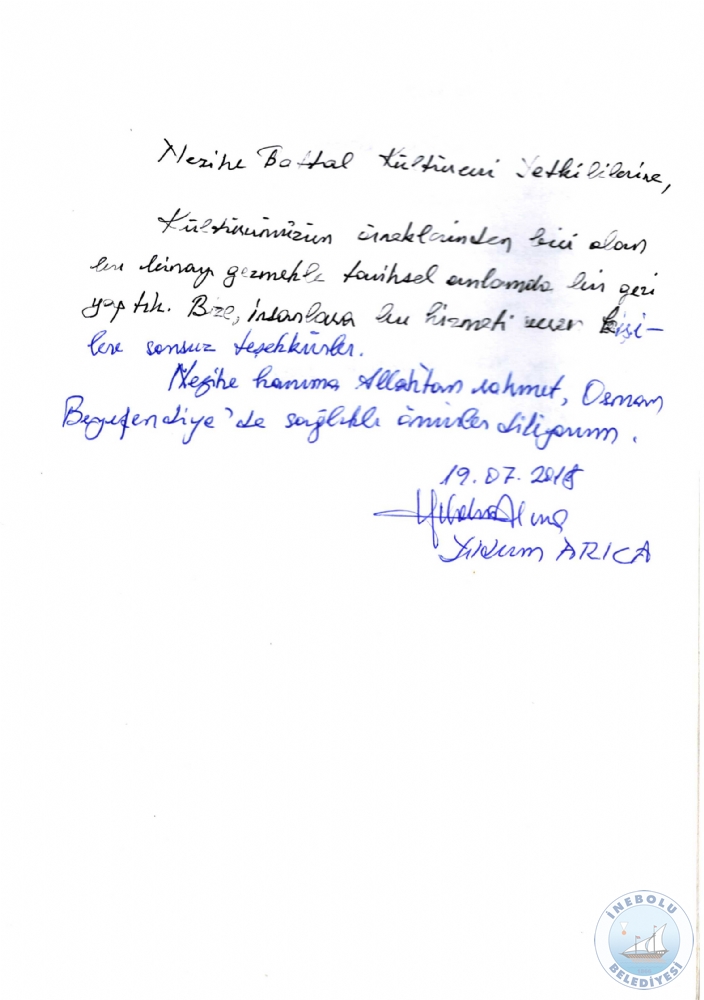 Nezihe Battal Kültürevi Yetkililerine,
Kültürümüzün örneklerinden biri olan
bu binayı gezmekle tarihsel anlamda bir gezi
yaptık. Bize, insanlara bu hizmeti veren kişi-
lere sonsuz teşekkürler.
Nezihe hanıma Allah'tan rahmet, Osman
Beyefendiye'de sağlıklı ömürler diliyorum.
19.07.2018
Yıldırım ARICA
İNEBOLU
BELEDİYESİ